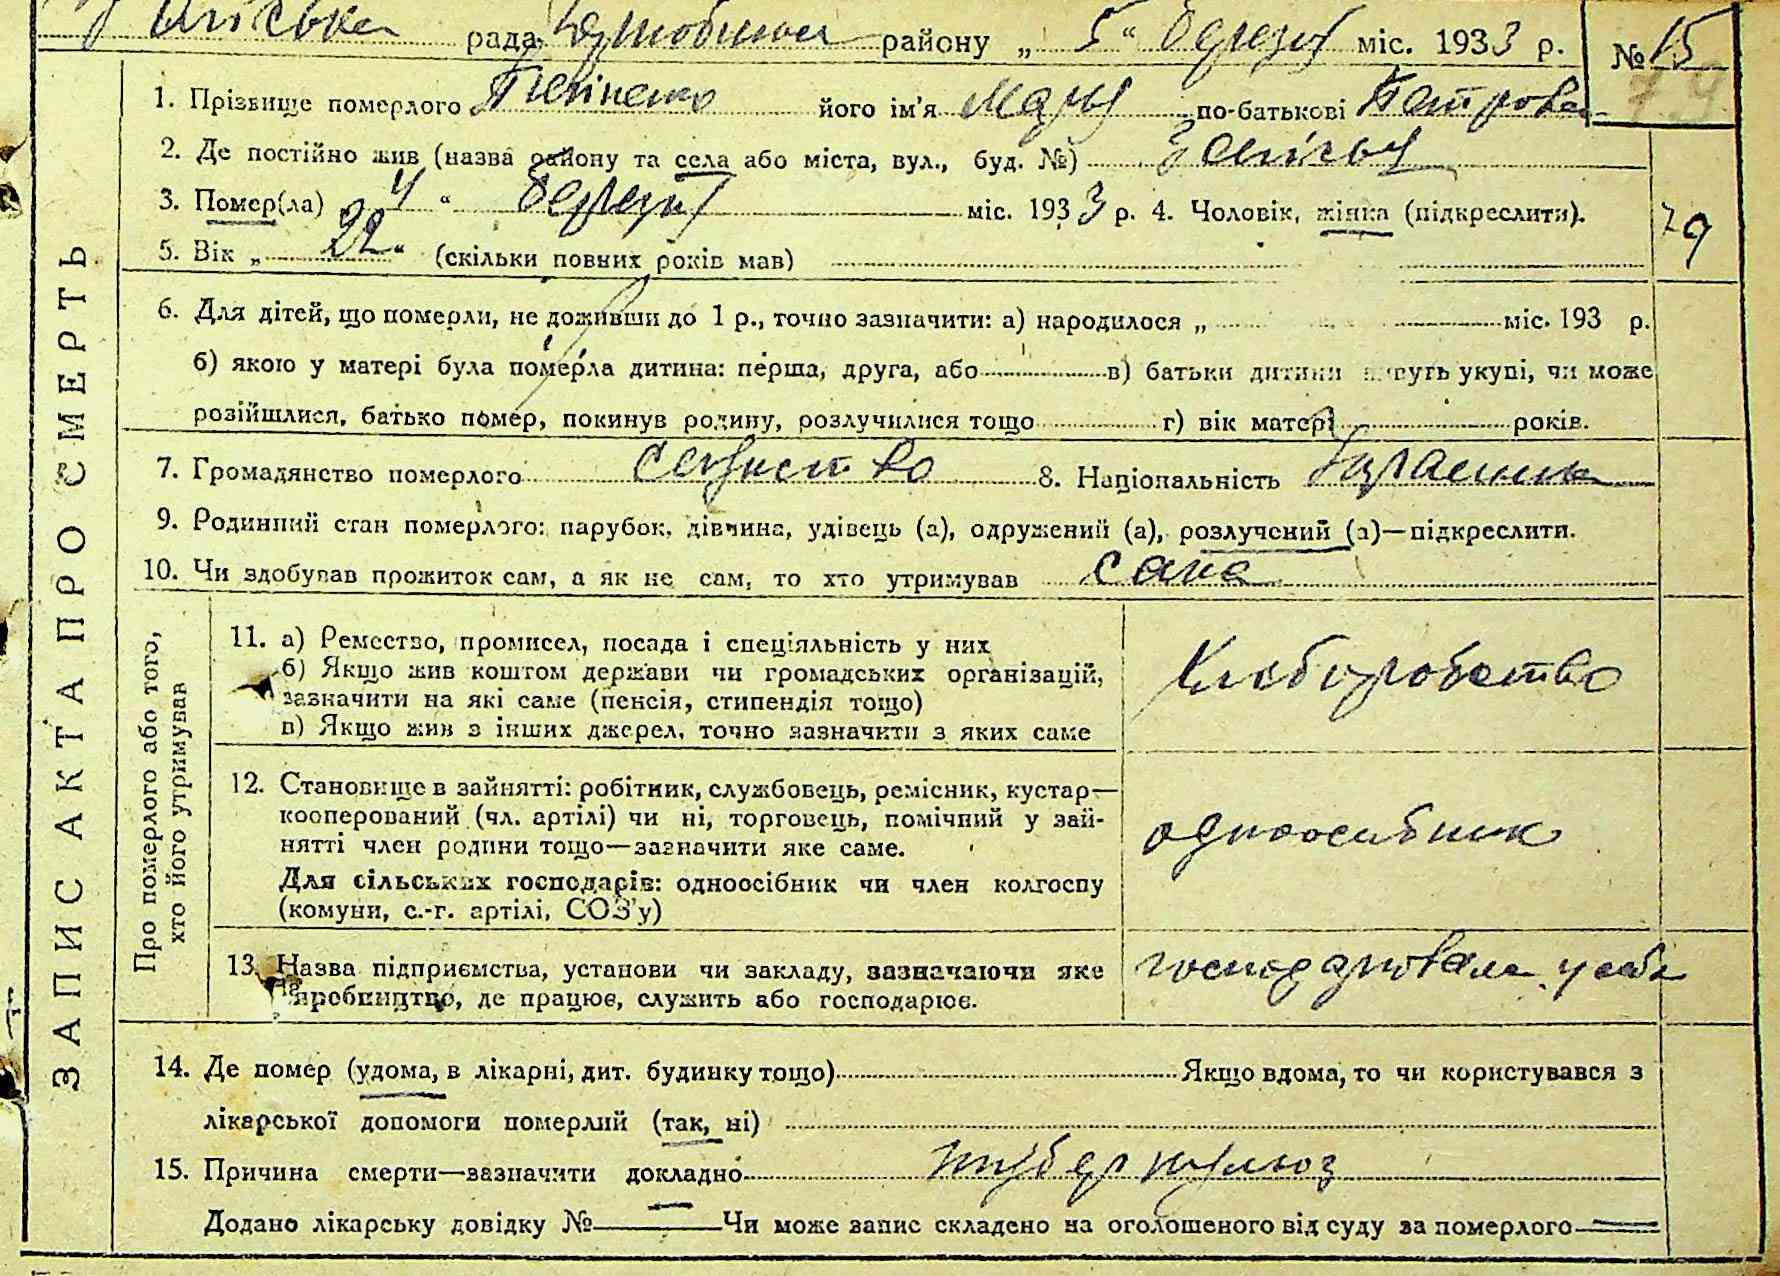 рада району „ 5 “ березня міс. 1933 р. № 15
79
1. Прізвище померлого його ім'я Марія по-батькові Петрова
2. Де постійно жив (назва району та села або міста, вул., буд. №)
3. Помер(ла) 4 “ березня міс. 1933 р. 4. Чоловік, жінка (підкреслити).
79
5. Вік „ 22 “ (скільки повних років мав)
6. Для дітей, що померли, не доживши до 1 р., точно зазначити: а) народилося „ міс. 193 р.
б) якою у матері була померла дитина: перша, друга, або в) батьки дитини живуть укупі, чи може
розійшлися, батько помер, покинув родину, розлучилися тощо г) вік матері років.
7. Громадянство померлого 8. Національність
9. Родинний стан померлого: парубок, дівчина, удівець (а), одружений (а), розлучений (а)—підкреслити.
10. Чи здобував прожиток сам, а як не сам, то хто утримував сама
ЗАПИС АКТА ПРО СМЕРТЬ
Про померлого або того,
хто його утримував
11. а) Ремество, промисел, посада і спеціяльність у них
б) Якщо жив коштом держави чи громадських організацій,
зазначити на які саме (пенсія, стипендія тощо)
в) Якщо жив з інших джерел, точно зазначити з яких саме
Хліборобство
12. Становище в зайнятті: робітник, службовець, ремісник, кустар—
кооперований (чл. артілі) чи ні, торговець, помічний у зай-
нятті член родини тощо—зазначити яке саме.
Для сільських господарів: одноосібник чи член колгоспу
(комуни, с.-г. артілі, СОЗ'у)
одноосібник
13. Назва підприємства, установи чи закладу, зазначаючи яке
виробництво, де працює, служить або господарює.
господарювала у себе
14. Де помер (удома, в лікарні, дит. будинку тощо) Якщо вдома, то чи користувався з
лікарської допомоги померлий (так, ні)
15. Причина смерти—зазначити докладно туберкульоз
Додано лікарську довідку № — Чи може запис складено на оголошеного від суду за померлого